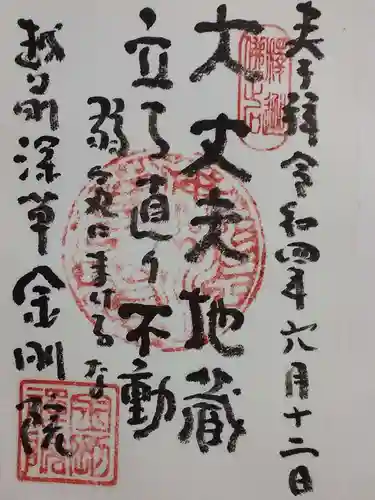 奉拝 令和四年六月十二日
大丈夫地蔵
立ち直り不動
弱気にまけるな
越前深草 金剛院